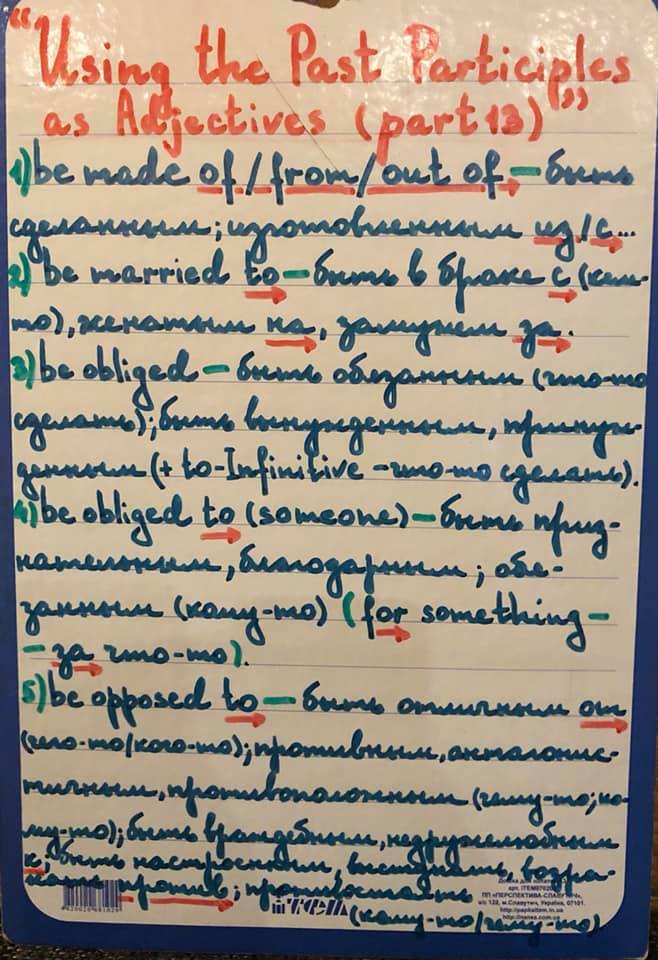 "Using the Past Participles
as Adjectives (part 13)"
1) be made of / from / out of – быть
сделанным; изготовленным из / с...
2) be married to – быть в браке с (кем-
то), женатым на, замужем за.
3) be obliged – быть обязанным (что-то
сделать); быть вынужденным, принуж-
денным (+ to-Infinitive – что-то сделать).
4) be obliged to (someone) – быть приз-
нательным, благодарным; обя-
занным (кому-то) (for something –
– за что-то).
5) be opposed to – быть отличным от
(чего-то/кого-то); противным, антагонис-
тичным, противоположным (чему-то; ко-
му-то); быть враждебным, недружелюбным
к; быть настроенным, выступать, возра-
жать против; противостоять
(кому-то/чему-то)
арт. ITEM
ПП «ПЕРСПЕКТИВА-СЛАВУТИЧ»,
а/с 122, м.Славутич, Україна, 07101.
http://papkaitem.in.ua
http://nanea.com.ua